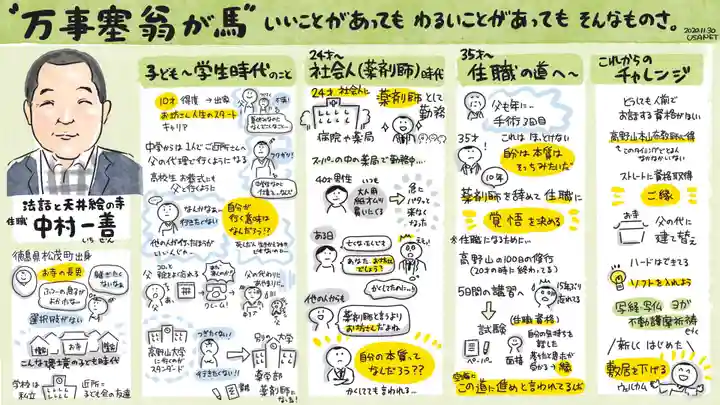 "万事塞翁が馬" いいことがあっても わるいことがあっても そんなものさ。
2020.11.30
USANET
法話と天井絵の寺
住職 中村一善
いちぜん
徳島県松茂町出身
お寺の長男
継ぎたくないなぁ
選択肢がない
お寺
こんな環境の子ども時代
学校は私立
近所=子ども会の友達
子ども〜学生時代のこと
10才 得度 → 出家
お坊さん人生のスタート
キャリア
中学からは 1人でご門所さんへ
父の代理で行くようになる
高校生 お葬式にも
父と行くように
なんかなぁ…
行きたくない
自分が
行く意味は
なんだろう??
他の人がやったほうが
いいんじゃ…
父
クレーム!
父の代わりは
つぎたくない!
高野山大学
に行くのが
スタンダード
行きたくない!!
別の大学
薬学部
薬剤師に
なる!
24才〜
社会人(薬剤師)時代
24才 社会人に
薬剤師として
勤務
病院や薬局
スーパーの中の薬局で勤務中…
40才 男性
いつも
大人用
紙オムツ
買いにくる
急に
パタッと
来なく
なった
ある日
亡くなったんです
あなた、お坊さん
でしょう?
かくしてたのに…!
他の人からも
薬剤師と言うより
お坊さんだよね
自分の本質って
なんだろう??
かくしても言われる…
35才〜
住職の道へ〜
父も年に…
手術3回目
35才
これは ほっとけない
自分は本質は
そっちみたいだ
10年
薬剤師を辞めて住職に
覚悟を決める
☆住職になるために…
高野山の100日の修行
(20才の時に終わってる)
5日間の講習へ
15年ぶり
忘れてる
試験
(住職資格)
ペーパー
面接
自分の気持ちを
話した
この道に進めと言われてるんだ
これからの
チャレンジ
どうしても人前で
お話する資格がほしい
高野山本山布教師心得
このタイミングでとは
なかなかいない
ストレートに資格取得
ご縁
お寺
父の代に
建て替え
ハードはできてる
ソフトを入れよう
写経・写仏 ヨガ
不動護摩祈祷
etc
新しくはじめた
敷居を下げる
ウェルカム